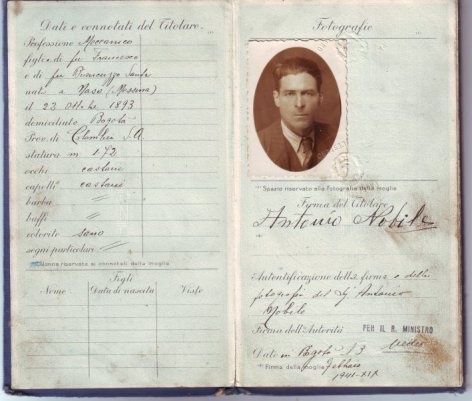 Dati e connotati del Titolare.
Professione Meccanico
figlio di fu Francesco
e di fu Buscuzzo Santa
nato a Naso (Messina)
il 23 Ottobre 1893
domiciliato Bogotà
Prov. di Colombia S.A
statura m 1.72
occhi castani
capelli castani
barba //
baffi //
colorito sano
segni particolari //
Pagina riservata ai connotati della moglie
Figli
Nome Data di nascita Visto
Fotografie
*** Spazio riservato alla fotografia della moglie
Firma del Titolare
Antonio Nobile
Autentificazione della firma e della
fotografia del Sig Antonio
Nobile
Firma dell'Autorità PER IL R. MINISTRO
Data in Bogotà
* Firma della moglie febbraio
1941-XIX